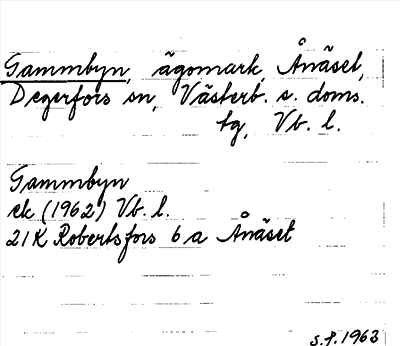 Gammbyn, ägomark, Ånäset,
Degerfors sn, Västerb. s. doms.
tg, Vb. l.
Gammbyn
ek (1962) Vb. l.
21K Robertsfors 6a Ånäset
S.P. 1963